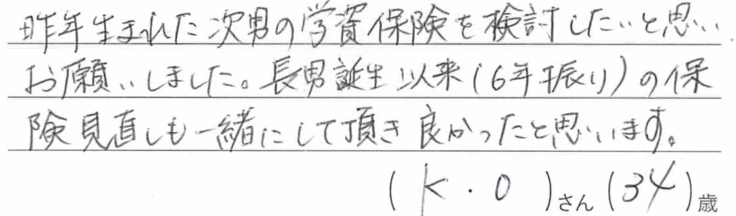 昨年生まれた次男の学資保険を検討したいと思い
お願いしました。長男誕生以来(6年振り)の保
険見直しも一緒にして頂き良かったと思います。
(K.O)さん(34)歳